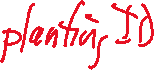 planting ID